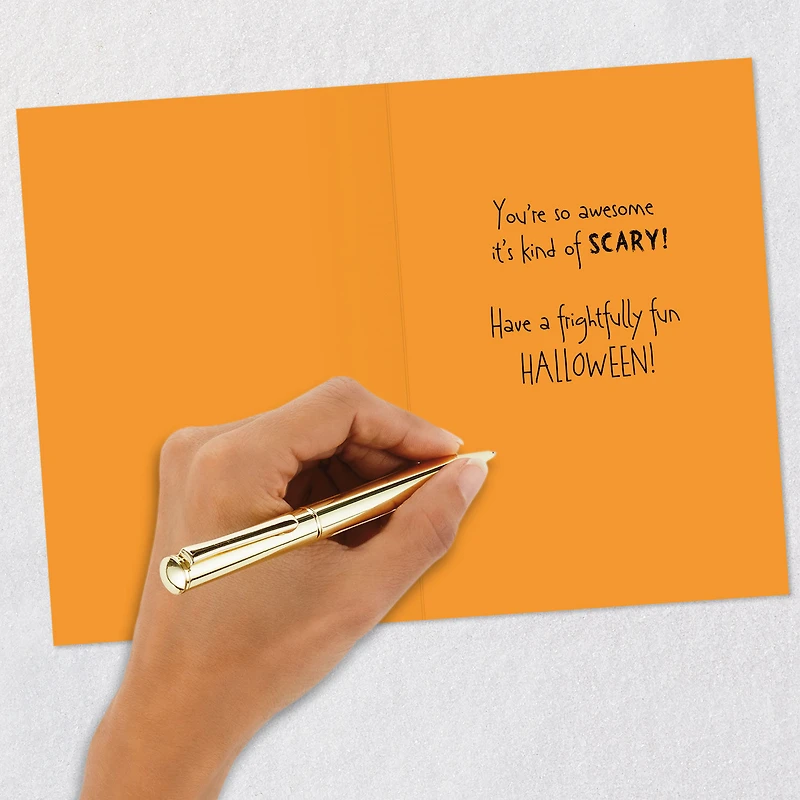 You're so awesome
it's kind of SCARY!
Have a frightfully fun
HALLOWEEN!